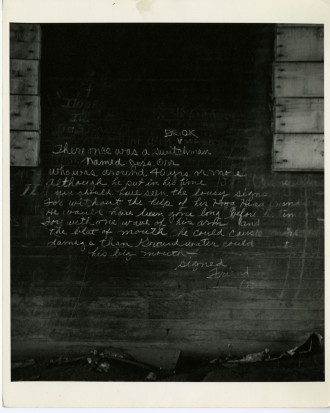 BRISK
There once was a switchman
Named Jasa Orr
who was around 40 yrs or more
Although he put in his time
you should have seen the lousy signs
For without the help of his
He would have been gone long before his
For with one wave of his arm and
the blat of mouth he could cause
damage than Ground water could
his big mouth
signed